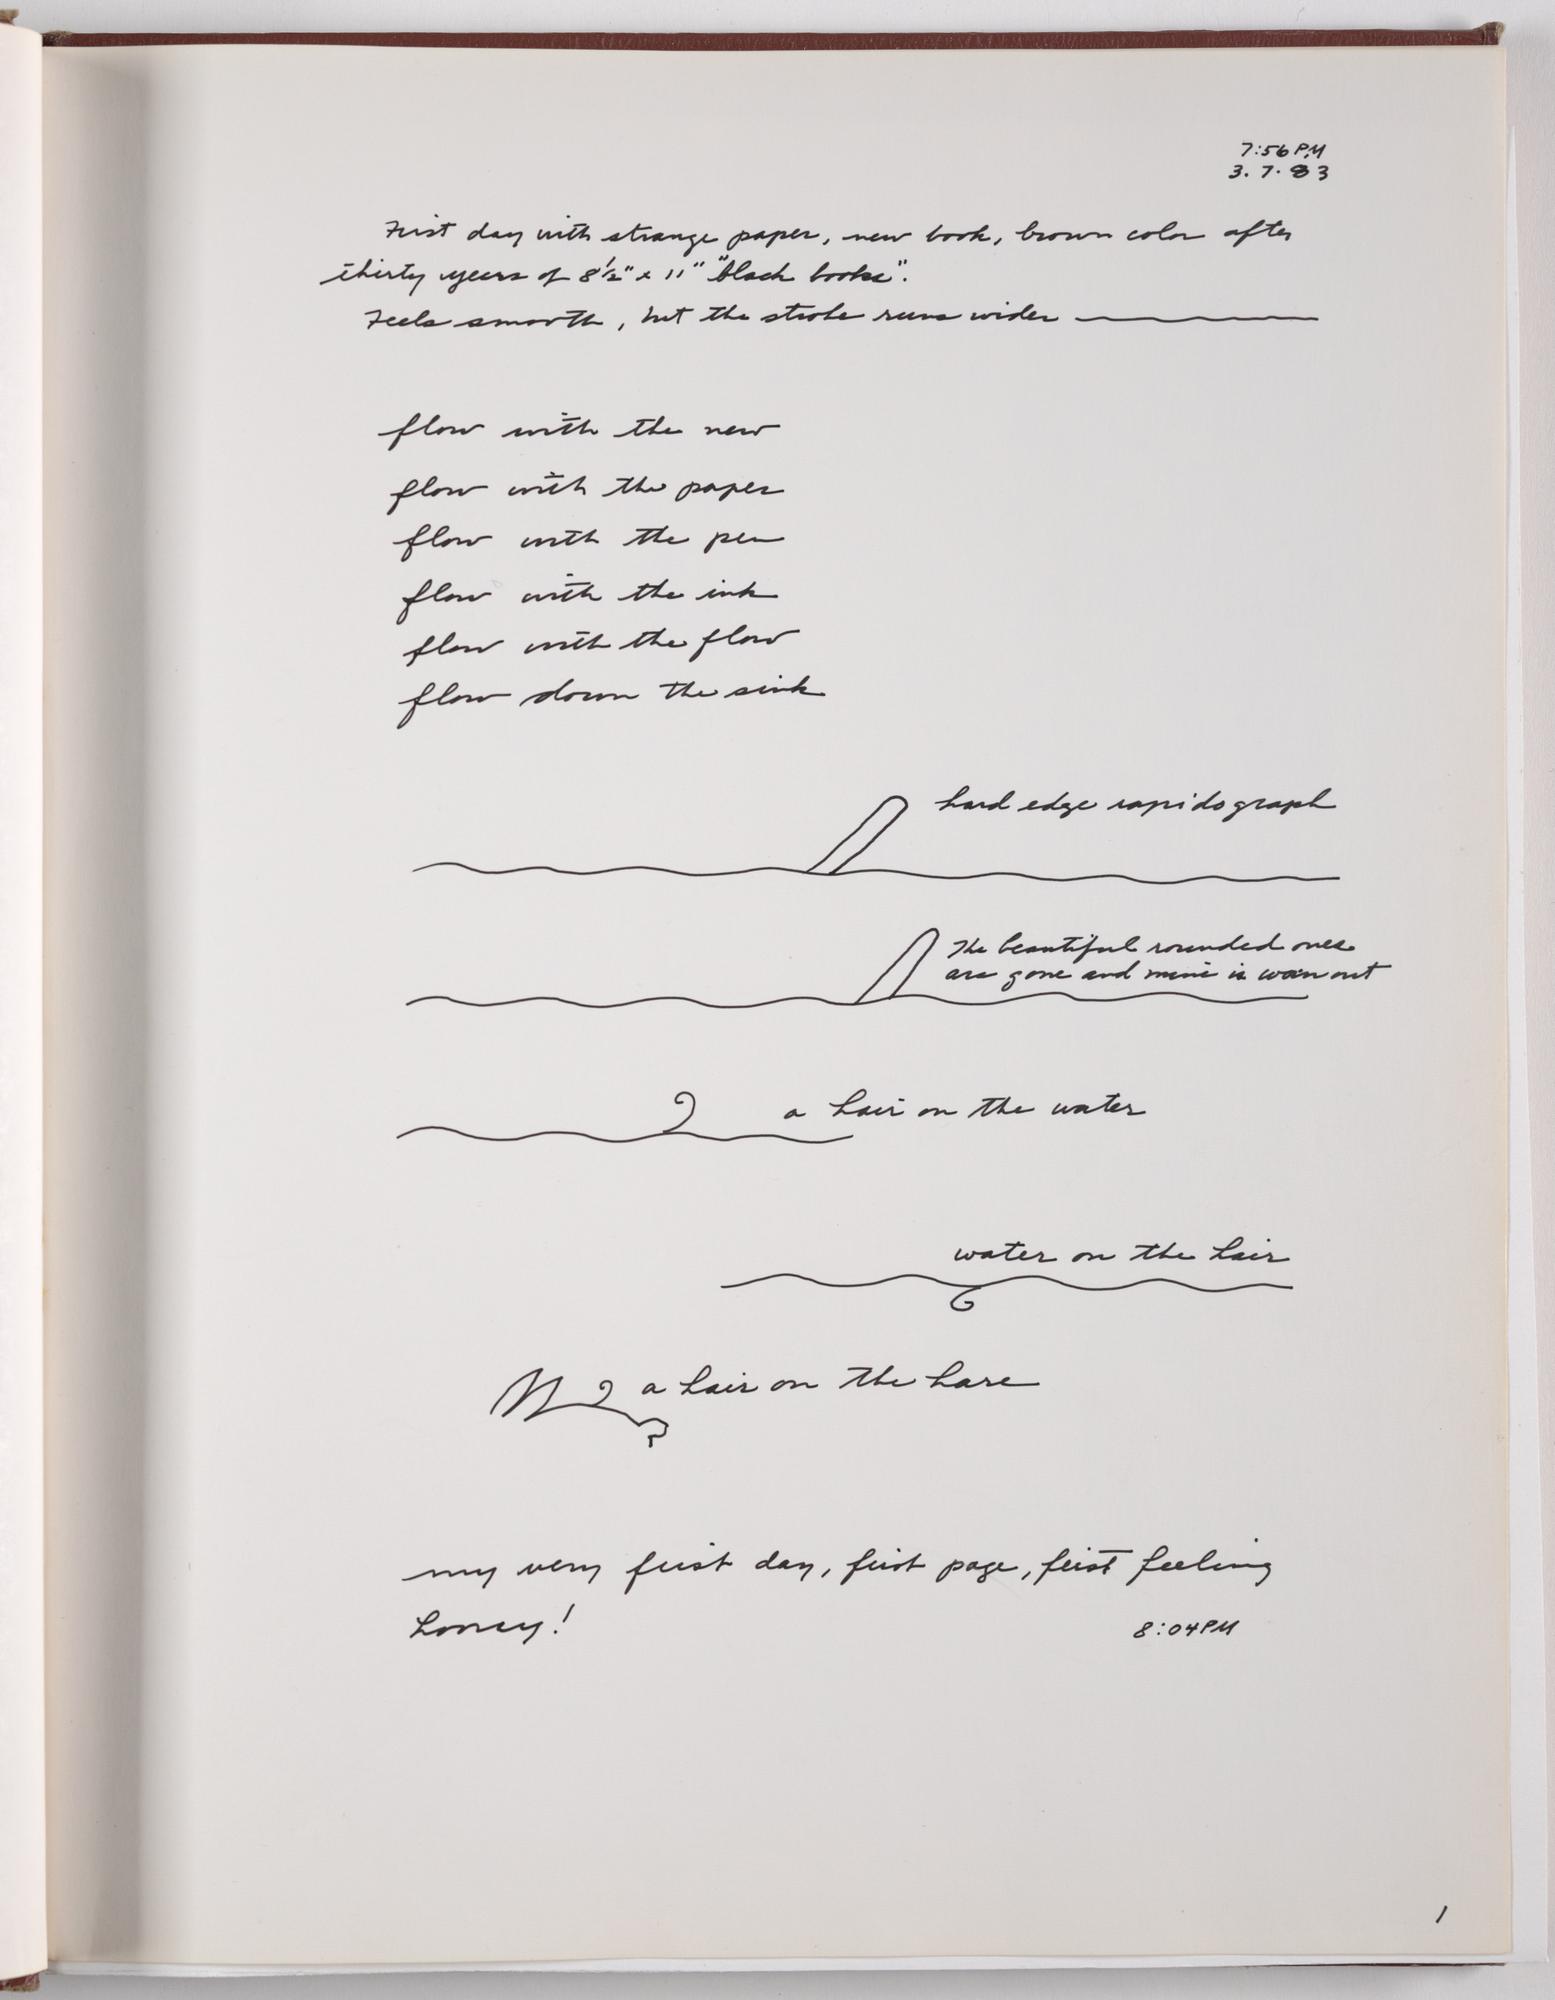 7:56 PM
3. 7. 83
First day with strange paper, new book, brown color after
thirty years of 8½" x 11" "black books".
Feels smooth, but the stroke runs wider
flow with the new
flow with the paper
flow with the pen
flow with the ink
flow with the flow
flow down the sink
hard edge rapidograph
The beautiful rounded ones
are gone and mine is worn out
a hair on the water
water on the hair
a hair on the hare
my very first day, first page, first feeling
honey!
8:04 PM
1